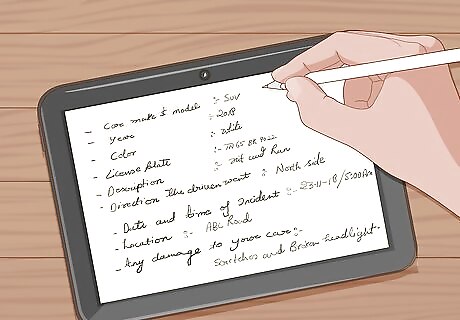 - Car make & model :- SUV
- Year :- 2018
- Color :- White
- License Plate :- TN65 BK 9022
- Description :- Hit and Run
- Direction the driver went :- North side
- Date and time of Incident :- 23-11-18/5:00Am
- Location :- ABC Road
- Any damage to your car:-
Scratches and Broken headlight.